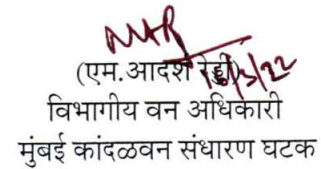 (एम.आदर्श रेड्डी)
विभागीय वन अधिकारी
मुंबई कांदळवन संधारण घटक